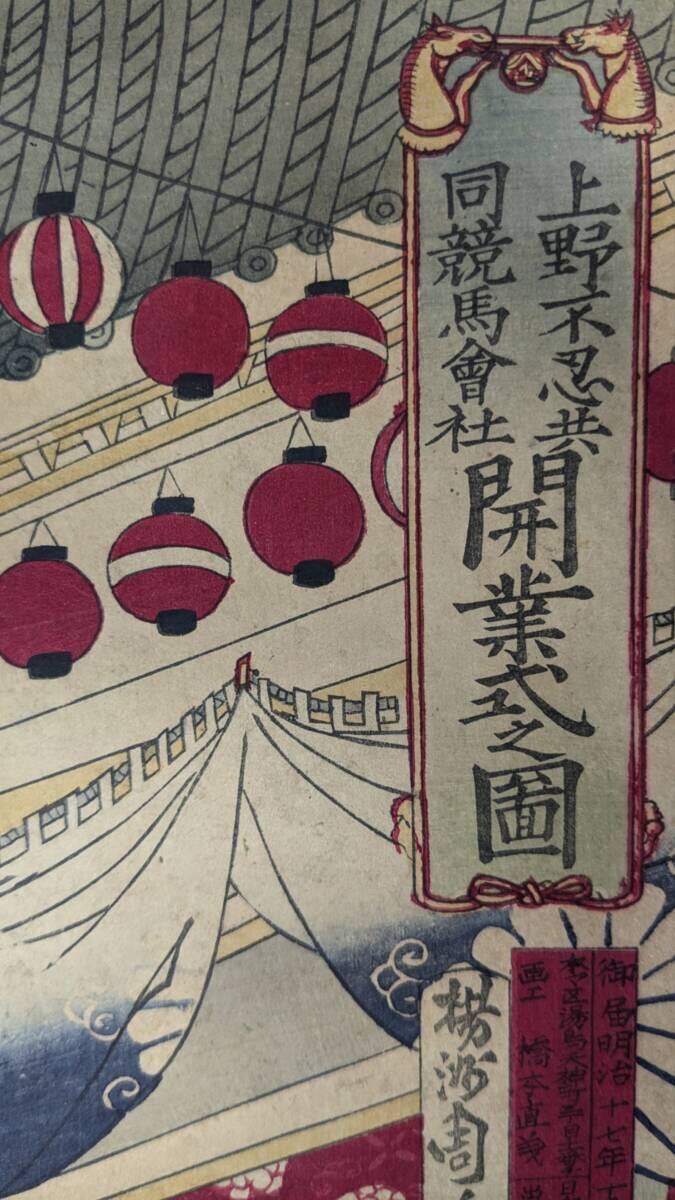 上野不忍共
同競馬會社
開業式之圖
御届明治十七年
画工 橋本直義
楊洲周